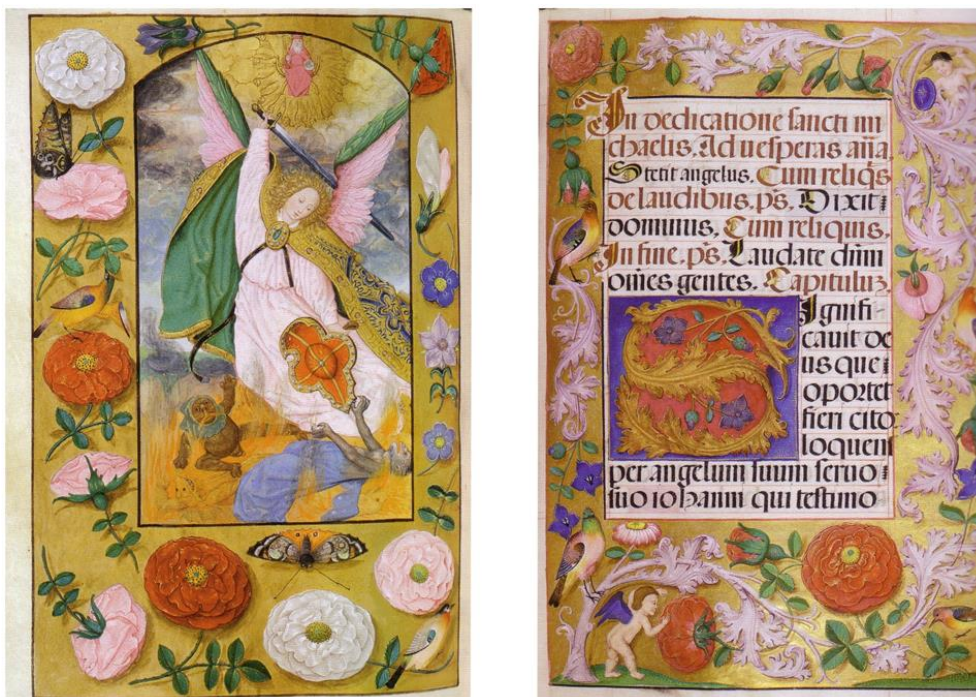 In dedicatione sancti mi
chaelis. Ad uesperas an̄a
Stetit angelus. Cum reliq̄s
de laudibus. ps̄. Dixit
dominus, Cum reliquis.
In fine. ps̄. Laudate dn̄m
om̄es gentes. Capitulum.
Signifi
cauit de
us que
oportet
fieri cito
loquen
per angelum suum seruo
suo iohanni qui testimo